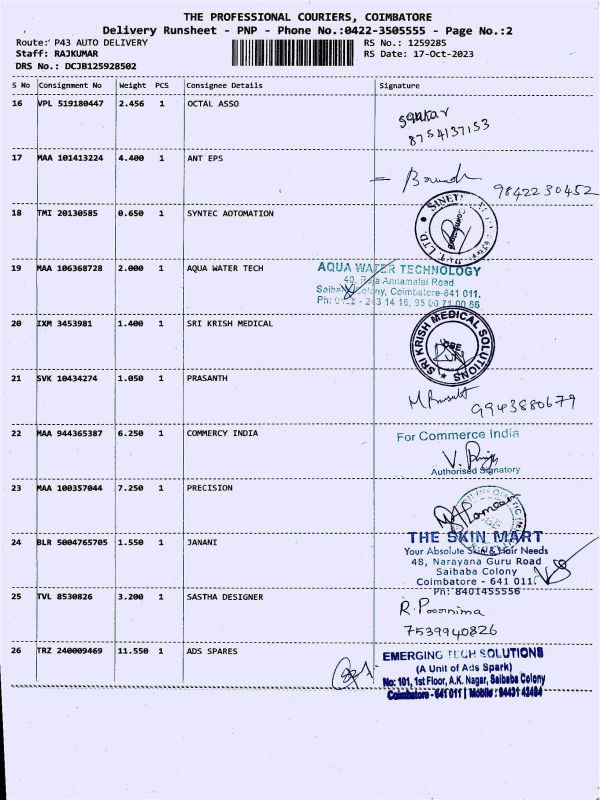 THE PROFESSIONAL COURIERS, COIMBATORE
Delivery Runsheet - PNP - Phone No.:0422-3505555 - Page No.:2
Route: P43 AUTO DELIVERY
Staff: RAJKUMAR
DRS No.: DCJB125928502
RS No.: 1259285
RS Date: 17-Oct-2023
S No Consignment No Weight PCS Consignee Details Signature
16 VPL 519180447 2.456 1 OCTAL ASSO
8754137153
17 MAA 101413224 4.400 1 ANT EPS
9842230452
18 TMI 20130585 0.650 1 SYNTEC AOTOMATION
19 MAA 106368728 2.000 1 AQUA WATER TECH
AQUA WATER TECHNOLOGY
40, Raja Annamalai Road
Saibaba Colony, Coimbatore-641 011.
20 IXM 3453981 1.400 1 SRI KRISH MEDICAL
SRI KRISH MEDICAL SOLUTIONS
21 SVK 10434274 1.050 1 PRASANTH
9943880679
22 MAA 944365387 6.250 1 COMMERCY INDIA
For Commerce India
Authorised Signatory
23 MAA 100357044 7.250 1 PRECISION
24 BLR 5004765705 1.550 1 JANANI
THE SKIN MART
Your Absolute Skin & Hair Needs
48, Narayana Guru Road
Saibaba Colony
Coimbatore - 641 011.
Ph: 8401455556
25 TVL 8530826 3.200 1 SASTHA DESIGNER
R. Poornima
7539940826
26 TRZ 240009469 11.550 1 ADS SPARES
EMERGING TECH SOLUTIONS
(A Unit of Ads Spark)
No: 101, 1st Floor, A.K. Nagar, Saibaba Colony
Coimbatore - 641 011 | Mobile : 94431 42484